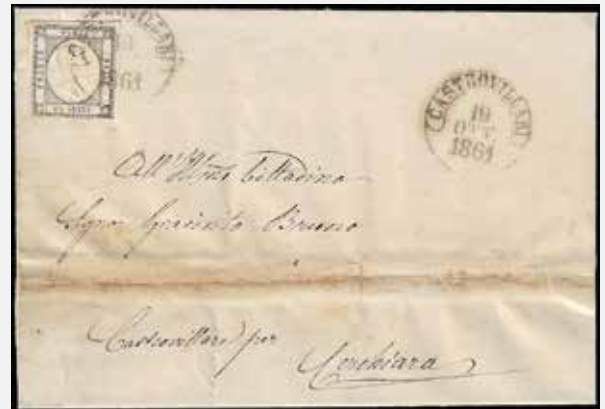 CASTROVILLARI
19
OTT
1861
All'Illmo Cittadino
Signor Giacinto Bruno
Castrovillari per
Cerchiara